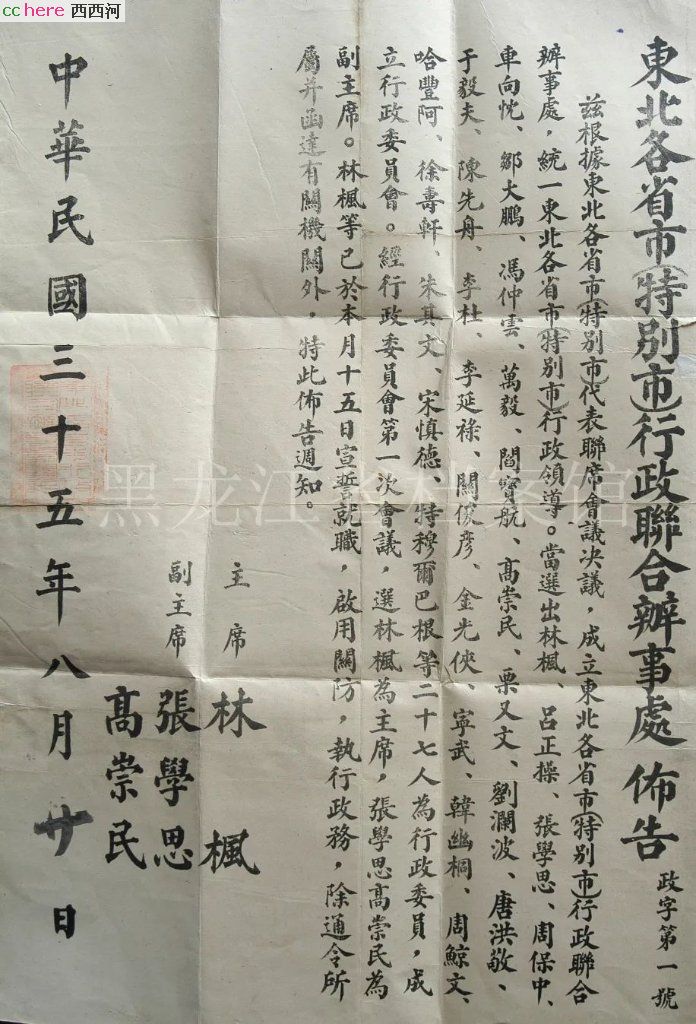 cchere 西西河
東北各省市(特別市)行政聯合辦事處 佈告
政字第一號
茲根據東北各省市(特別市)代表聯席會議決議，成立東北各省市(特別市)行政聯合
辦事處，統一東北各省市(特別市)行政領導。當選出林楓、呂正操、張學思、周保中、
車向忱、鄒大鵬、馮仲雲、萬毅、閻寶航、高崇民、栗又文、劉瀾波、唐洪敬、
于毅夫、陳先舟、李杜、李延祿、關俊彥、金光俠、寧武、韓幽桐、周鯨文、
哈豐阿、徐壽軒、朱其文、宋慎德、特穆爾巴根等二十七人為行政委員，成
立行政委員會。經行政委員會第一次會議，選林楓為主席，張學思高崇民為
副主席。林楓等已於本月十五日宣誓就職，啟用關防，執行政務，除通令所
屬并函達有關機關外，特此佈告週知。
主席 林楓
副主席 張學思
高崇民
中華民國三十五年八月廿日
黑龙江 档案馆